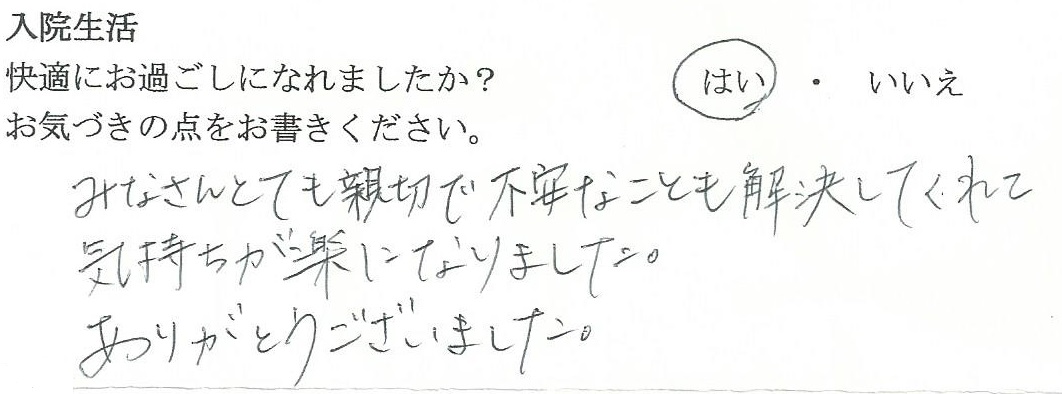 入院生活
快適にお過ごしになれましたか? はい ・ いいえ
お気づきの点をお書きください。
みなさんとても親切で不安なことも解決してくれて
気持ちが楽になりました。
ありがとうございました。